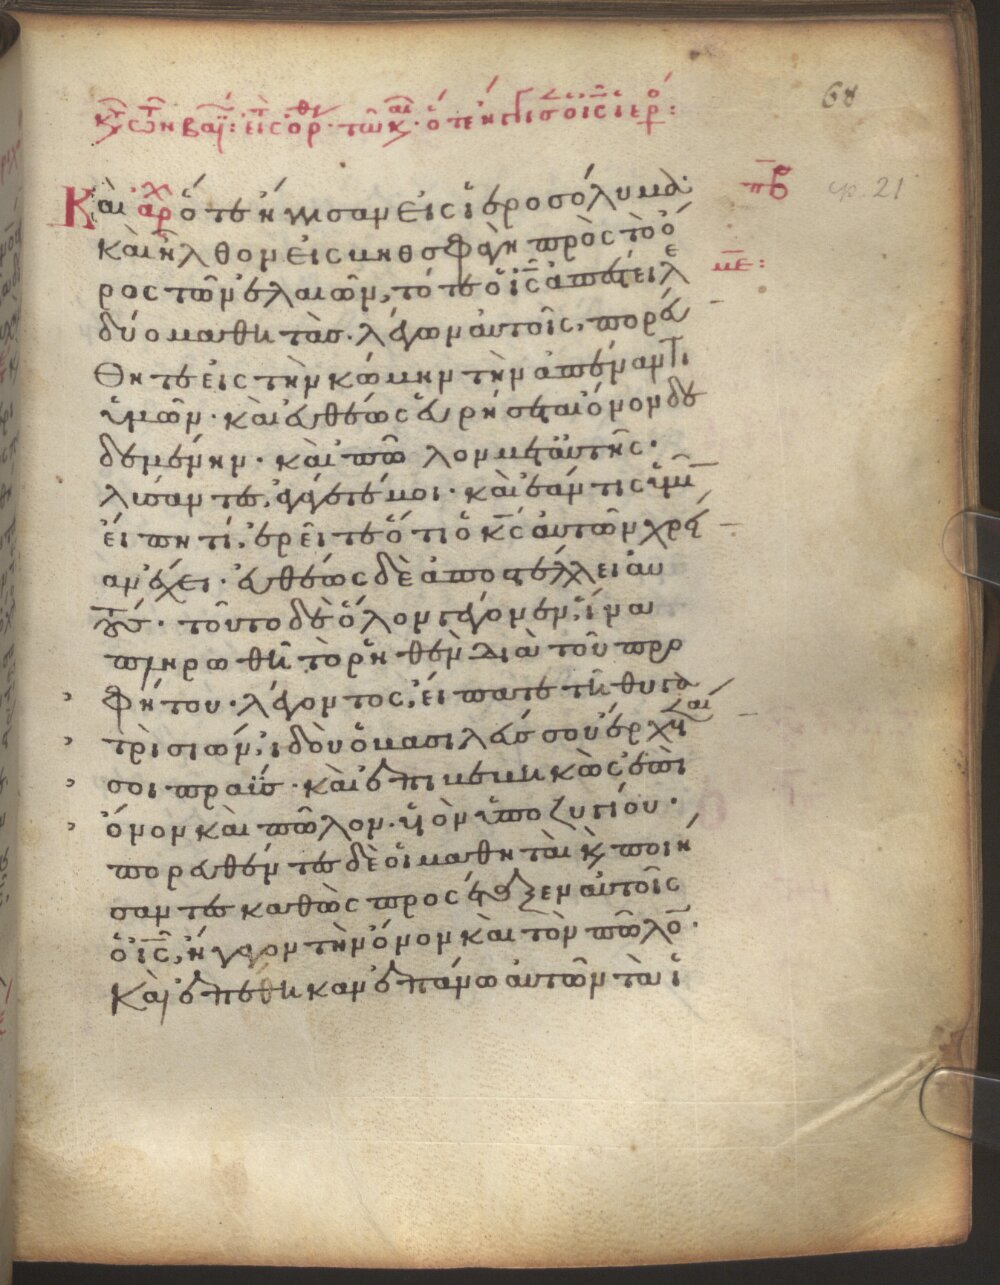 68
Κὰι ὅτε ἤγγισαν εἰς ἱεροσόλυμα·
κὰι ἦλθον εἰς βηθσφαγὴ πρὸς τὸ ὄ
ρος τῶν ἐλαιῶν, τότε ὁ ἰς ἀπέστειλε
δύο μαθητὰσ· λέγων αὐτοῖς, πορεύ
θητε εἰς τὴν κώμην τὴν ἀπέναντι
ὑμῶν· κὰι εὐθέως εὑρήσεται ὄνον δε
δεμένην· κὰι πῶλον μετ αὐτῆς·
λύσαντες, ἀγάγετέ μοι· κὰι ἐάν τις ὑμῖν
εἴπη τί, ἐρεῖτε ὅτι ὁ κς αὐτῶν χρεί
αν ἔχει· εὐθέως δὲ ἀποστέλλει αυ
τούς· τοῦτο δὲ ὅλον γέγονεν, ἵνα
πληρωθῆ τὸ ρηθὲν διὰ τοῦ προ
φήτου· λέγοντος, εἴπατε τῆ θυγα
τρὶ σιών, ἰδοὺ ὁ βασιλεύς σου ἔρχεται
σοι πραΰς· κὰι ἐπιβεβηκὼς ἐπὶ
ὄνον κὰι πῶλον· υἱὸν ὑποζυγίου·
πορευθέντες δὲ οἱ μαθηταὶ κ ποιή
σαντες καθὼς προσέταξεν αὐτοῖς
ὁ ις, ἤγαγον τὴν ὄνον κὰι τὸν πῶλον·
Κὰι ἐπέθηκαν ἐπάνω αὐτῶν τὰ ἱ
πβ
με:
21